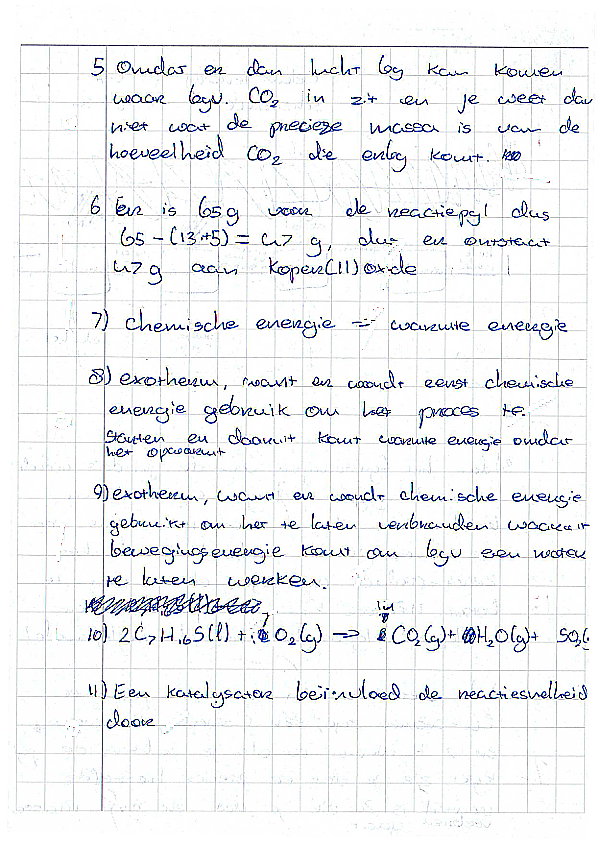 5 Omdat er dan lucht bij kan komen
waar bijv. CO₂ in zit en je weet dan
niet wat de precieze massa is van de
hoeveelheid CO₂ die erbij komt.
6 Er is 65g voor de reactiepijl dus
65 - (13+5) = 47 g, dus er ontstaat
47 g aan koper(II)oxide
7) chemische energie → warmte energie
8) exotherm, want er wordt eerst chemische
energie gebruik om het proces te.
starten en daaruit komt warmte energie omdat
het opwarmt
9) exotherm, want er wordt chemische energie
gebruikt om het te laten verbranden waaruit
bewegingsenergie komt om bijv een motor
te laten werken.
10) 2C₇H₁₆S(l) + O₂(g) → 14 CO₂(g) + H₂O(g) + SO₂(
11) Een katalysator beïnvloed de reactiesnelheid
door